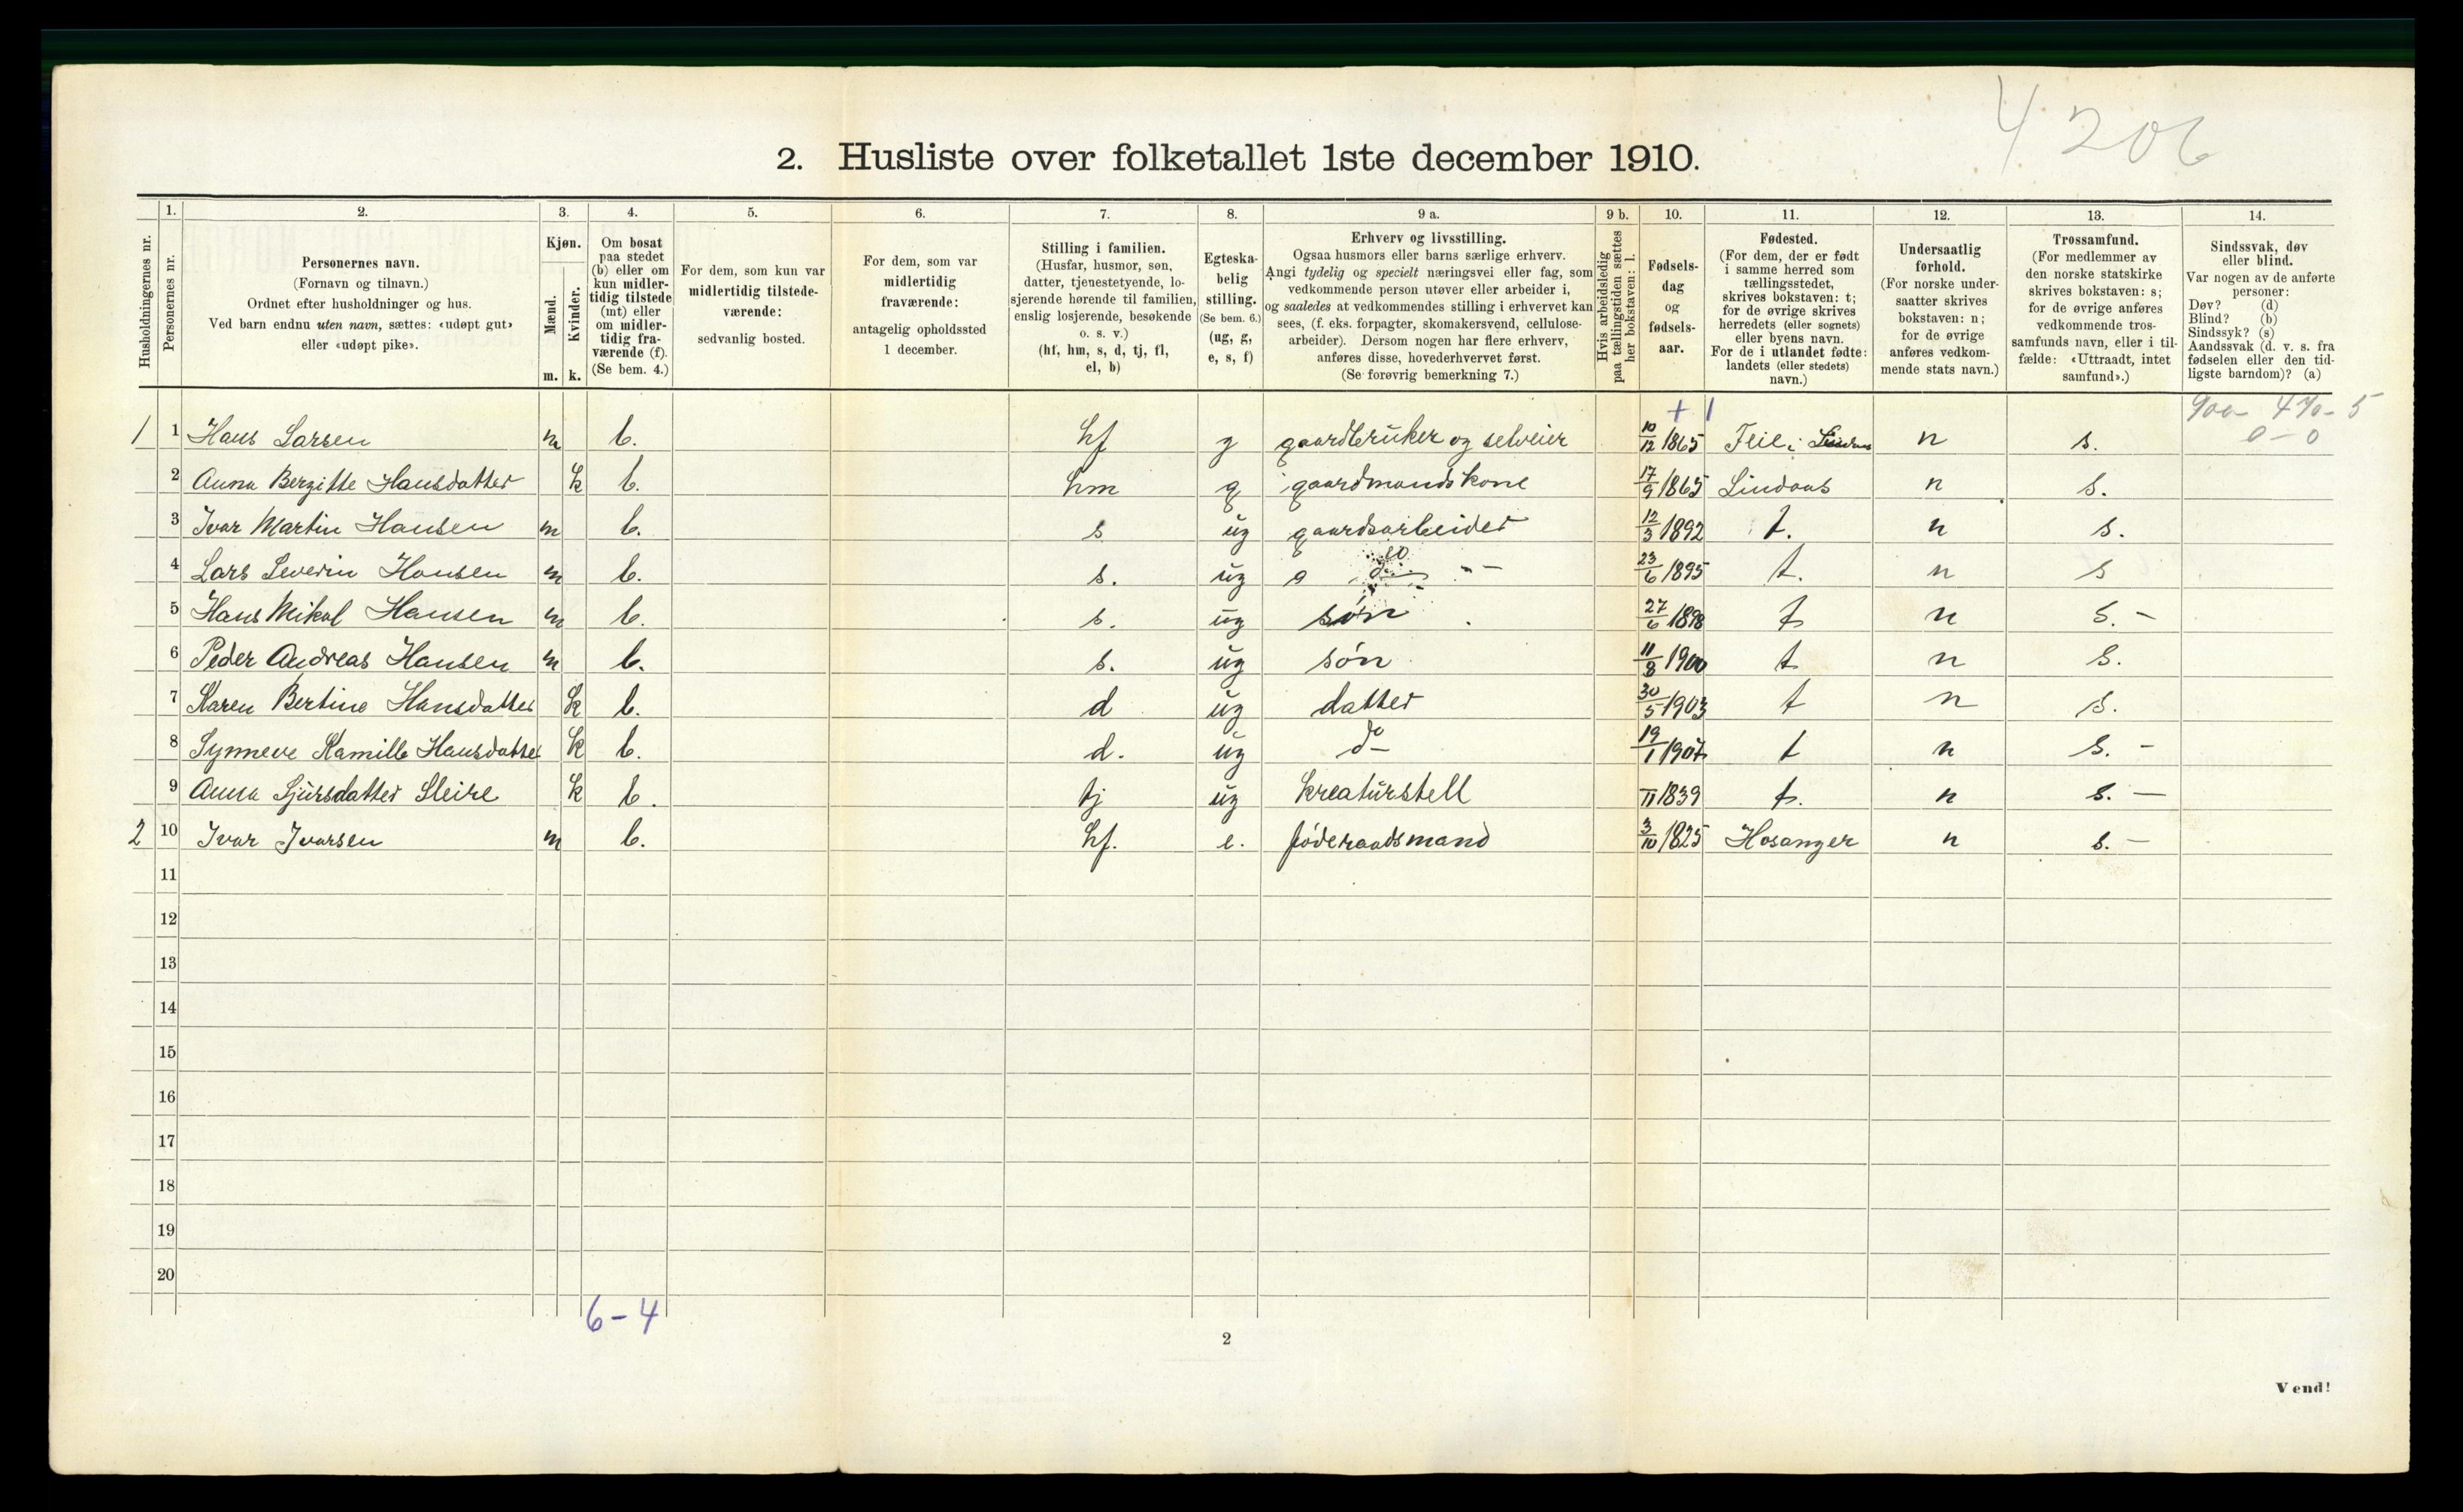 4206
2. Husliste over folketallet 1ste december 1910.
Husholdningernes nr.
1. Personernes nr.
2. Personernes navn. (Fornavn og tilnavn.) Ordnet efter husholdninger og hus. Ved barn endnu uten navn, sættes: «udøpt gut» eller «udøpt pike».
3. Kjøn. Mænd. m. Kvinder. k.
4. Om bosat paa stedet (b) eller om kun midlertidig tilstede (mt) eller om midlertidig fraværende (f). (Se bem. 4.)
5. For dem, som kun var midlertidig tilstedeværende: sedvanlig bosted.
6. For dem, som var midlertidig fraværende: antagelig opholdssted 1 december.
7. Stilling i familien. (Husfar, husmor, søn, datter, tjenestetyende, losjerende hørende til familien, enslig losjerende, besøkende o. s. v.) (hf, hm, s, d, tj, fl, el, b)
8. Egteskabelig stilling. (Se bem. 6.) (ug, g, e, s, f)
9 a. Erhverv og livsstilling. Ogsaa husmors eller barns særlige erhverv. Angi tydelig og specielt næringsvei eller fag, som vedkommende person utøver eller arbeider i, og saaledes at vedkommendes stilling i erhvervet kan sees, (f. eks. forpagter, skomakersvend, cellulosearbeider). Dersom nogen har flere erhverv, anføres disse, hovederhvervet først. (Se forøvrig bemerkning 7.)
9 b. Hvis arbeidsledig paa tællingstiden sættes her bokstaven: l.
10. Fødselsdag og fødselsaar.
11. Fødested. (For dem, der er født i samme herred som tællingsstedet, skrives bokstaven: t; for de øvrige skrives herredets (eller sognets) eller byens navn. For de i utlandet fødte: landets (eller stedets) navn.)
12. Undersaatlig forhold. (For norske undersaatter skrives bokstaven: n; for de øvrige anføres vedkommende stats navn.)
13. Trossamfund. (For medlemmer av den norske statskirke skrives bokstaven: s; for de øvrige anføres vedkommende trossamfunds navn, eller i tilfælde: «Uttraadt, intet samfund».)
14. Sindssvak, døv eller blind. Var nogen av de anførte personer: Døv? (d) Blind? (b) Sindssyk? (s) Aandssvak (d. v. s. fra fødselen eller den tidligste barndom)? (a)
+ 1 900- 470- 5
0 - 0
1 1 Hans Larsen m b. hf g gaardbruker og selveier 10/12 1865 Feie i Lindaas n s.
2 Anna Bergitte Hansdatter k b. hm g gaardmandskone 17/9 1865 Lindaas n s.
3 Ivar Martin Hansen m b. s ug gaardsarbeider 12/3 1892 t. n s.
4 Lars Severin Hansen m b. s. ug do 23/6 1895 t. n s
5 Hans Mikal Hansen m b. s. ug søn 27/6 1898 t n s. -
6 Peder Andreas Hansen m b. s. ug søn 11/8 1900 t n s.
7 Karen Bertine Hansdatter k b. d ug datter 30/5 1903 t n s.
8 Synneve Kamille Hansdatter k b. d. ug do 19/1 1907 t n s. -
9 Anna Sjursdatter Sleire k b. tj ug kreaturstell /11 1839 t. n s. -
2 10 Ivar Ivarsen m b. hf. e. føderaadsmand 3/10 1825 Hosanger n s. -
11
12
13
14
15
16
17
18
19
20
6 - 4
2
Vend!